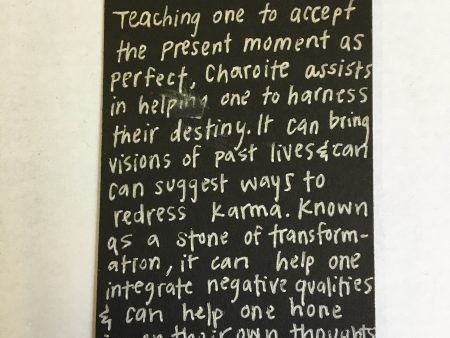 Teaching one to accept
the present moment as
perfect, Charoite assists
in helping one to harness
their destiny. It can bring
visions of past lives & can
can suggest ways to
redress karma. Known
as a stone of transform-
ation, it can help one
integrate negative qualities
& can help one hone
in on their own thoughts